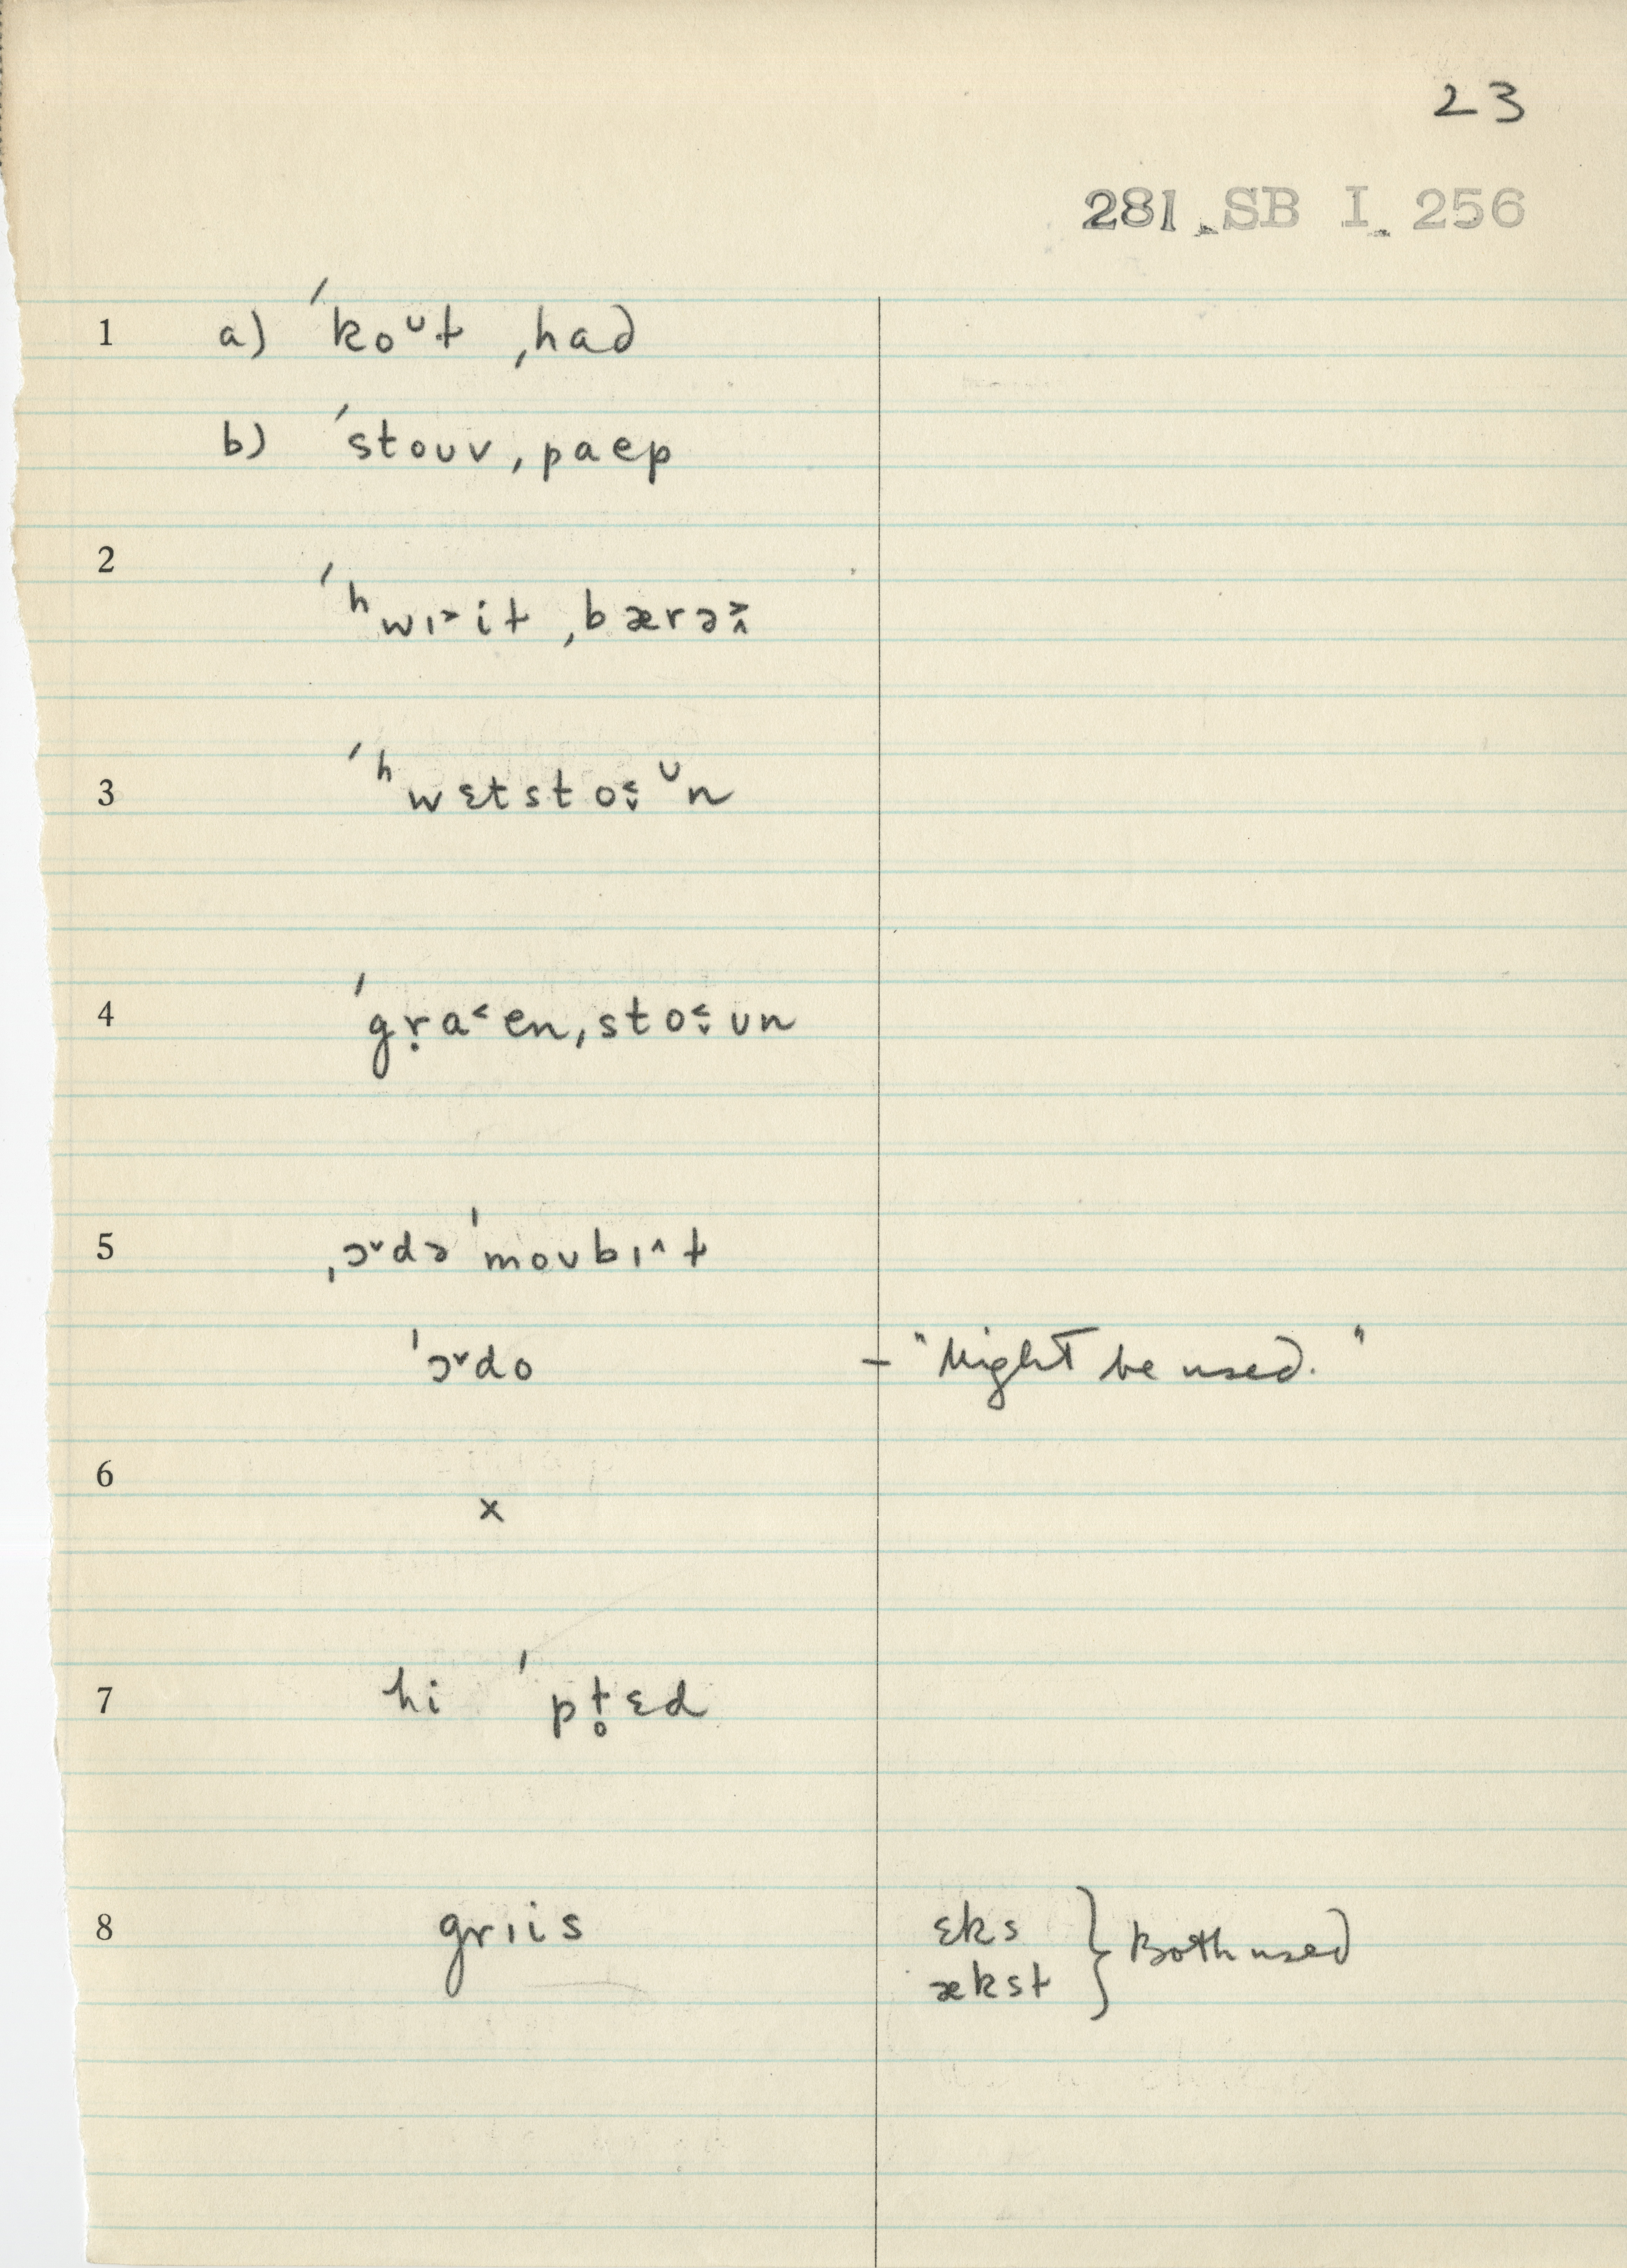 23
281 SB I 256
1 a) ˈkoᴜɫ ˌhad
b) ˈstoᴜv ˌpaep
2 ˈʰwɪ˃iɫ ˌbærə˃˄
3 ˈʰwɛtsto˂˅ᶷn
4 ˈgṛa˂en ˌsto˂˅ᴜn
5 ˌɔ˅də ˈmoᴜbɪ˄ɫ
ˈɔ˅do – "Might be used."
6 x
7 hi ˈpɫ̥ɛd
8 grɪis ɛks } Both used
æksɫ